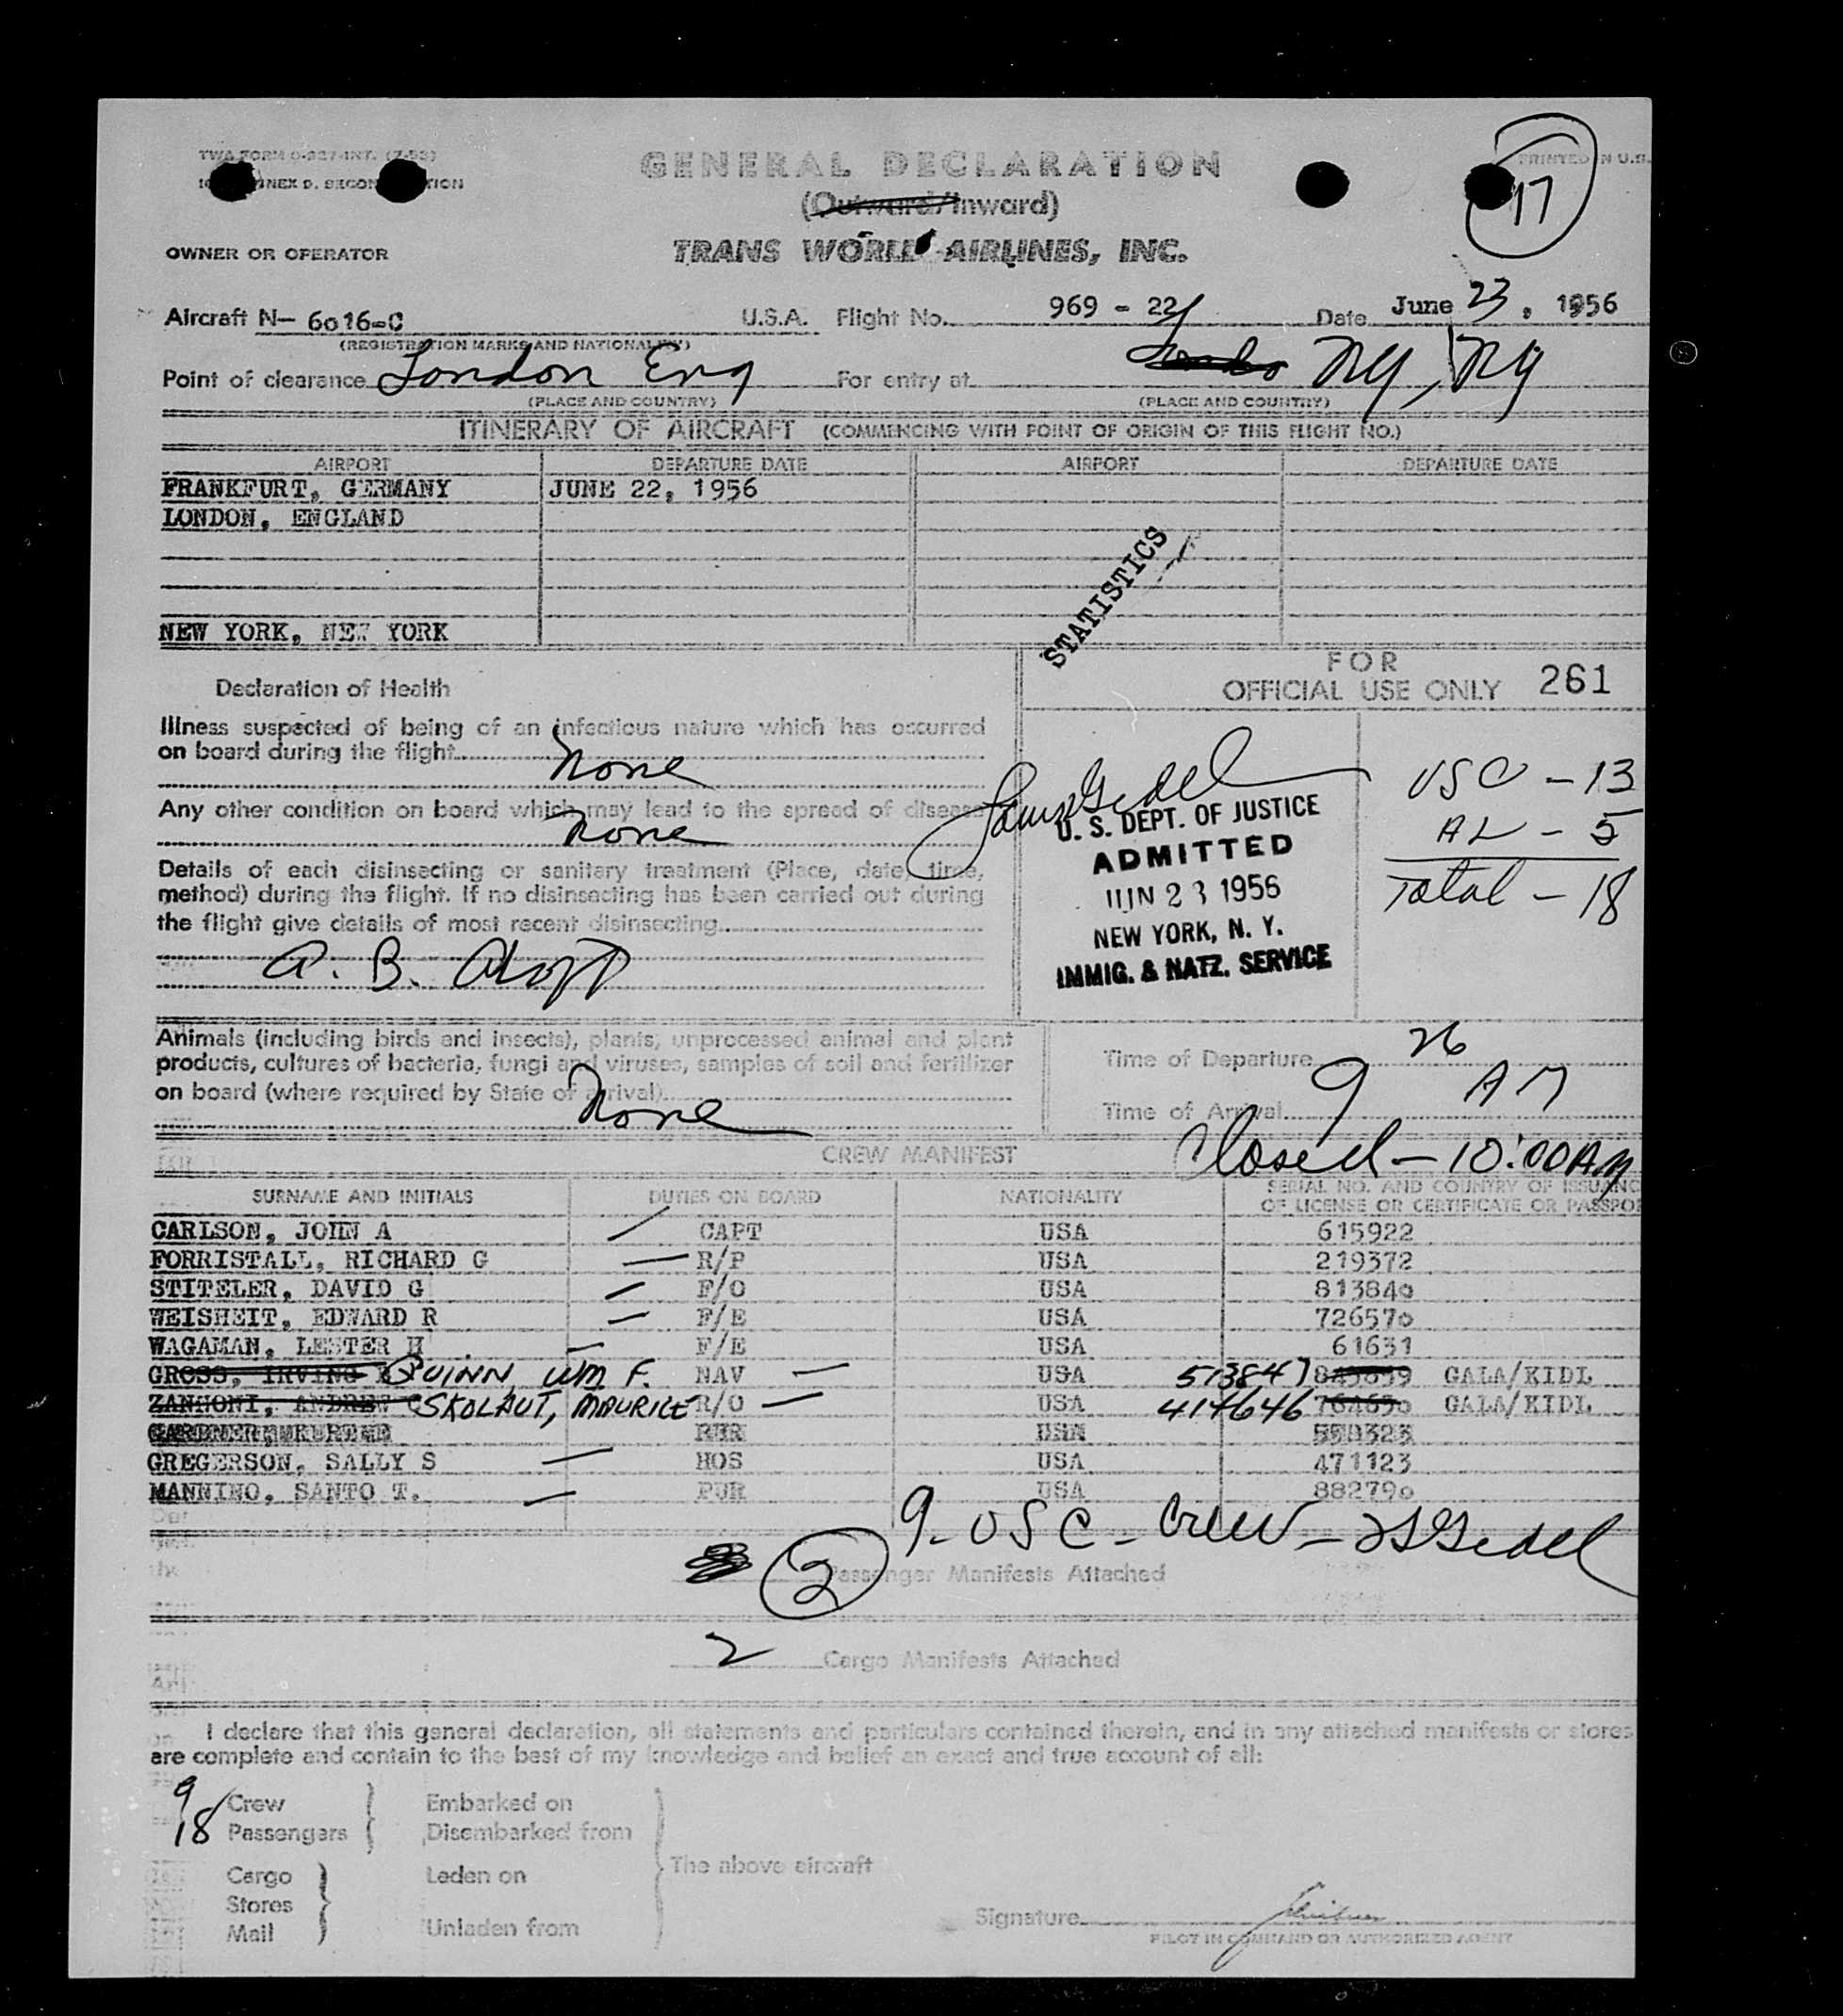 TWA FORM 0-827-INT. (7-53)
GENERAL DECLARATION
PRINTED IN U.S.
17
(Outward/Inward)
OWNER OR OPERATOR
TRANS WORLD AIRLINES, INC.
Aircraft N- 6016-C U.S.A. Flight No. 969 - 22 Date June 23, 1956
(REGISTRATION MARKS AND NATIONALITY)
Point of clearance London Eng For entry at NY, NY
(PLACE AND COUNTRY) (PLACE AND COUNTRY)
ITINERARY OF AIRCRAFT (COMMENCING WITH POINT OF ORIGIN OF THIS FLIGHT NO.)
AIRPORT DEPARTURE DATE AIRPORT DEPARTURE DATE
FRANKFURT, GERMANY JUNE 22, 1956
LONDON, ENGLAND
STATISTICS
NEW YORK, NEW YORK
FOR
OFFICIAL USE ONLY 261
Declaration of Health
Illness suspected of being of an infectious nature which has occurred
on board during the flight
None
Any other condition on board which may lead to the spread of disease
None
Details of each disinsecting or sanitary treatment (Place, date, time,
method) during the flight. If no disinsecting has been carried out during
the flight give details of most recent disinsecting
A. B.
U. S. DEPT. OF JUSTICE
ADMITTED
JUN 23 1956
NEW YORK, N. Y.
IMMIG. & NATZ. SERVICE
USC - 13
AL - 5
Total - 18
Animals (including birds and insects), plants, unprocessed animal and plant
products, cultures of bacteria, fungi and viruses, samples of soil and fertilizer
on board (where required by State of arrival)
None
Time of Departure 26
Time of Arrival 9 AM
Closed - 10:00 AM
CREW MANIFEST
SURNAME AND INITIALS DUTIES ON BOARD NATIONALITY SERIAL NO. AND COUNTRY OF ISSUANC
OF LICENSE OR CERTIFICATE OR PASSPO
CARLSON, JOHN A CAPT USA 615922
FORRISTALL, RICHARD G R/P USA 219372
STITELER, DAVID G F/O USA 813840
WEISHEIT, EDWARD R F/E USA 726570
WAGAMAN, LESTER H F/E USA 61631
GROSS, IRVING QUINN WM F. NAV USA 513847 GALA/KIDL
ZANHONI, ANDREW C SKOLAUT, MAURICE R/O USA 417646 GALA/KIDL
GREGERSON, SALLY S HOS USA 471123
MANNINO, SANTO T. PUR USA 882790
9 - USC - Crew -
2 Passenger Manifests Attached
2 Cargo Manifests Attached
I declare that this general declaration, all statements and particulars contained therein, and in any attached manifests or stores
are complete and contain to the best of my knowledge and belief an exact and true account of all:
9 Crew Embarked on
18 Passengers Disembarked from
The above aircraft
Cargo Laden on
Stores
Mail Unladen from
Signature
PILOT IN COMMAND OR AUTHORIZED AGENT